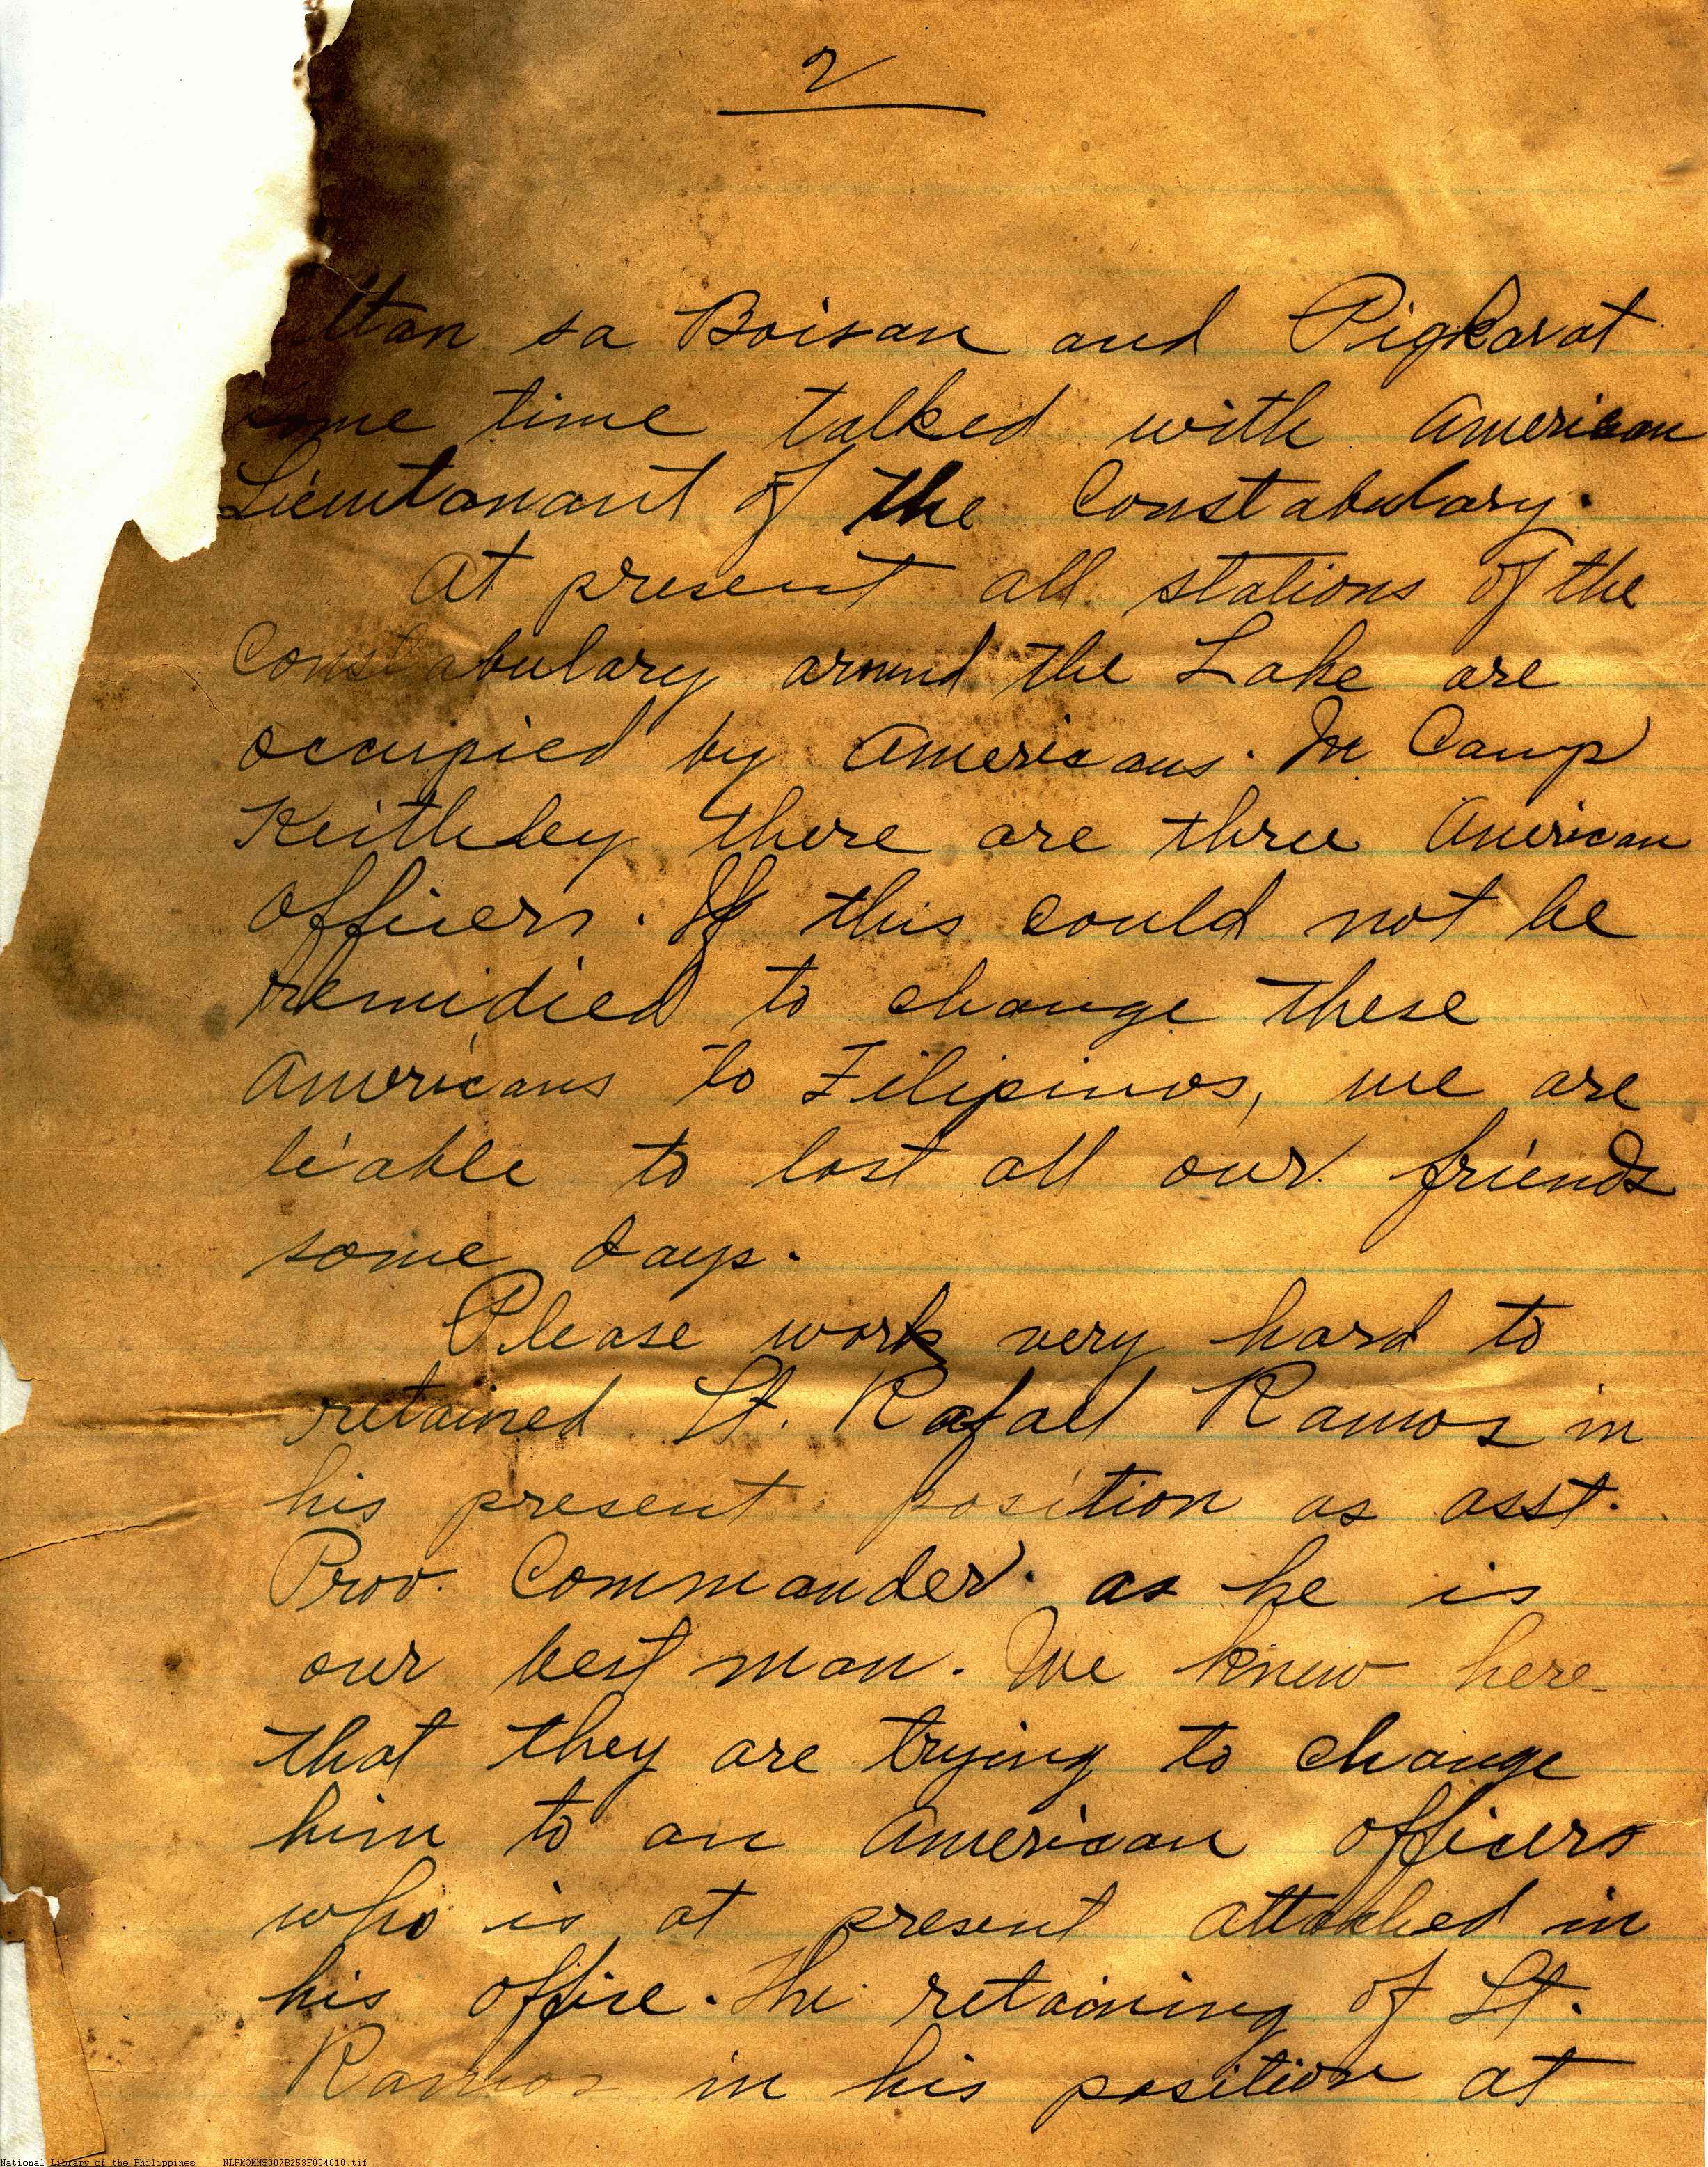 2
sa Boisan and Pigkarat
time talked with American
Lieutanant of the Constabulary.
At present all stations of the
Constabulary around the Lake are
occupied by Americans. In Camp
Keithley there are three American
Officers. If this could not be
remidied to change these
Americans to Filipinos, we are
liable to lost all our friends
some days.
Please work very hard to
retained Lt. Rafael Ramos in
his present position as asst.
Prov. Commander as he is
our best man. We knew here
that they are trying to change
him to an American officers
who is at present attached in
his office. The retaining of Lt.
Ramos in his position at
National Library of the Philippines NLPMQMNS007B253F004010.tif